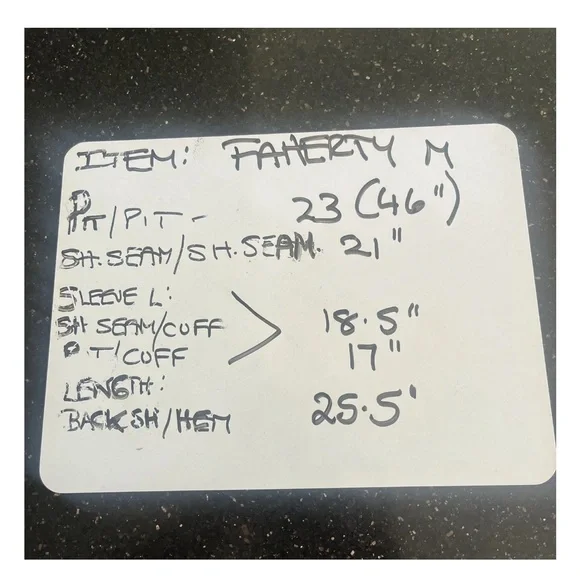 ITEM: FAHERTY M
PIT/PIT - 23 (46")
SH.SEAM/SH.SEAM. 21"
SLEEVE L:
SH SEAM/CUFF 18.5"
P T/CUFF 17"
LENGTH:
BACK SH/HEM 25.5'